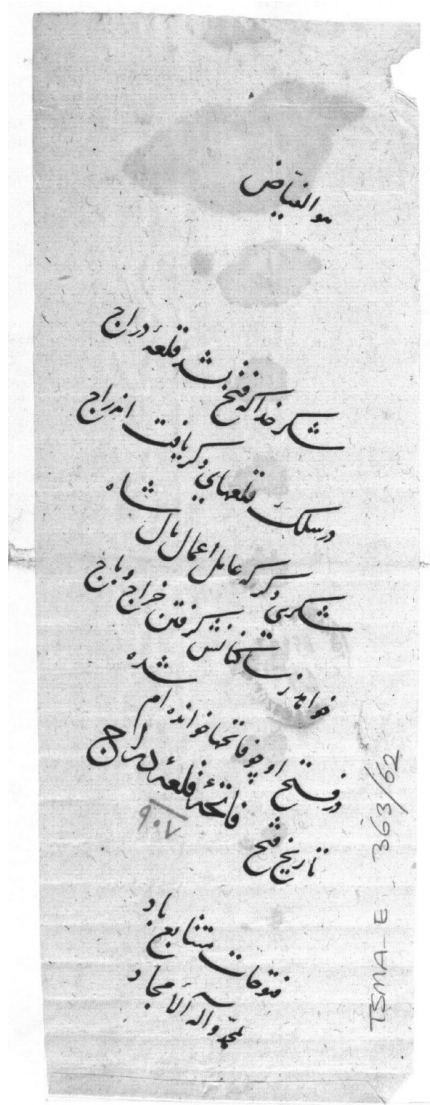 هو الفیّاض
شکر خدا که فتح شد قلعهٔ دراج
در سلک قلعهای دکر یافت اندراج
شکری دکر که عامل اعمال مال شاه
خواهد ز ساکنانش کرفتن خراج و باج
در فتح او چو فاتحها خوانده‌ام شده
تاریخ فتح فاتحهٔ قلعهٔ دراج
907
فتوحات متتابع باد
بمحمّد وآله الأمجاد
TSMA-E 363/62